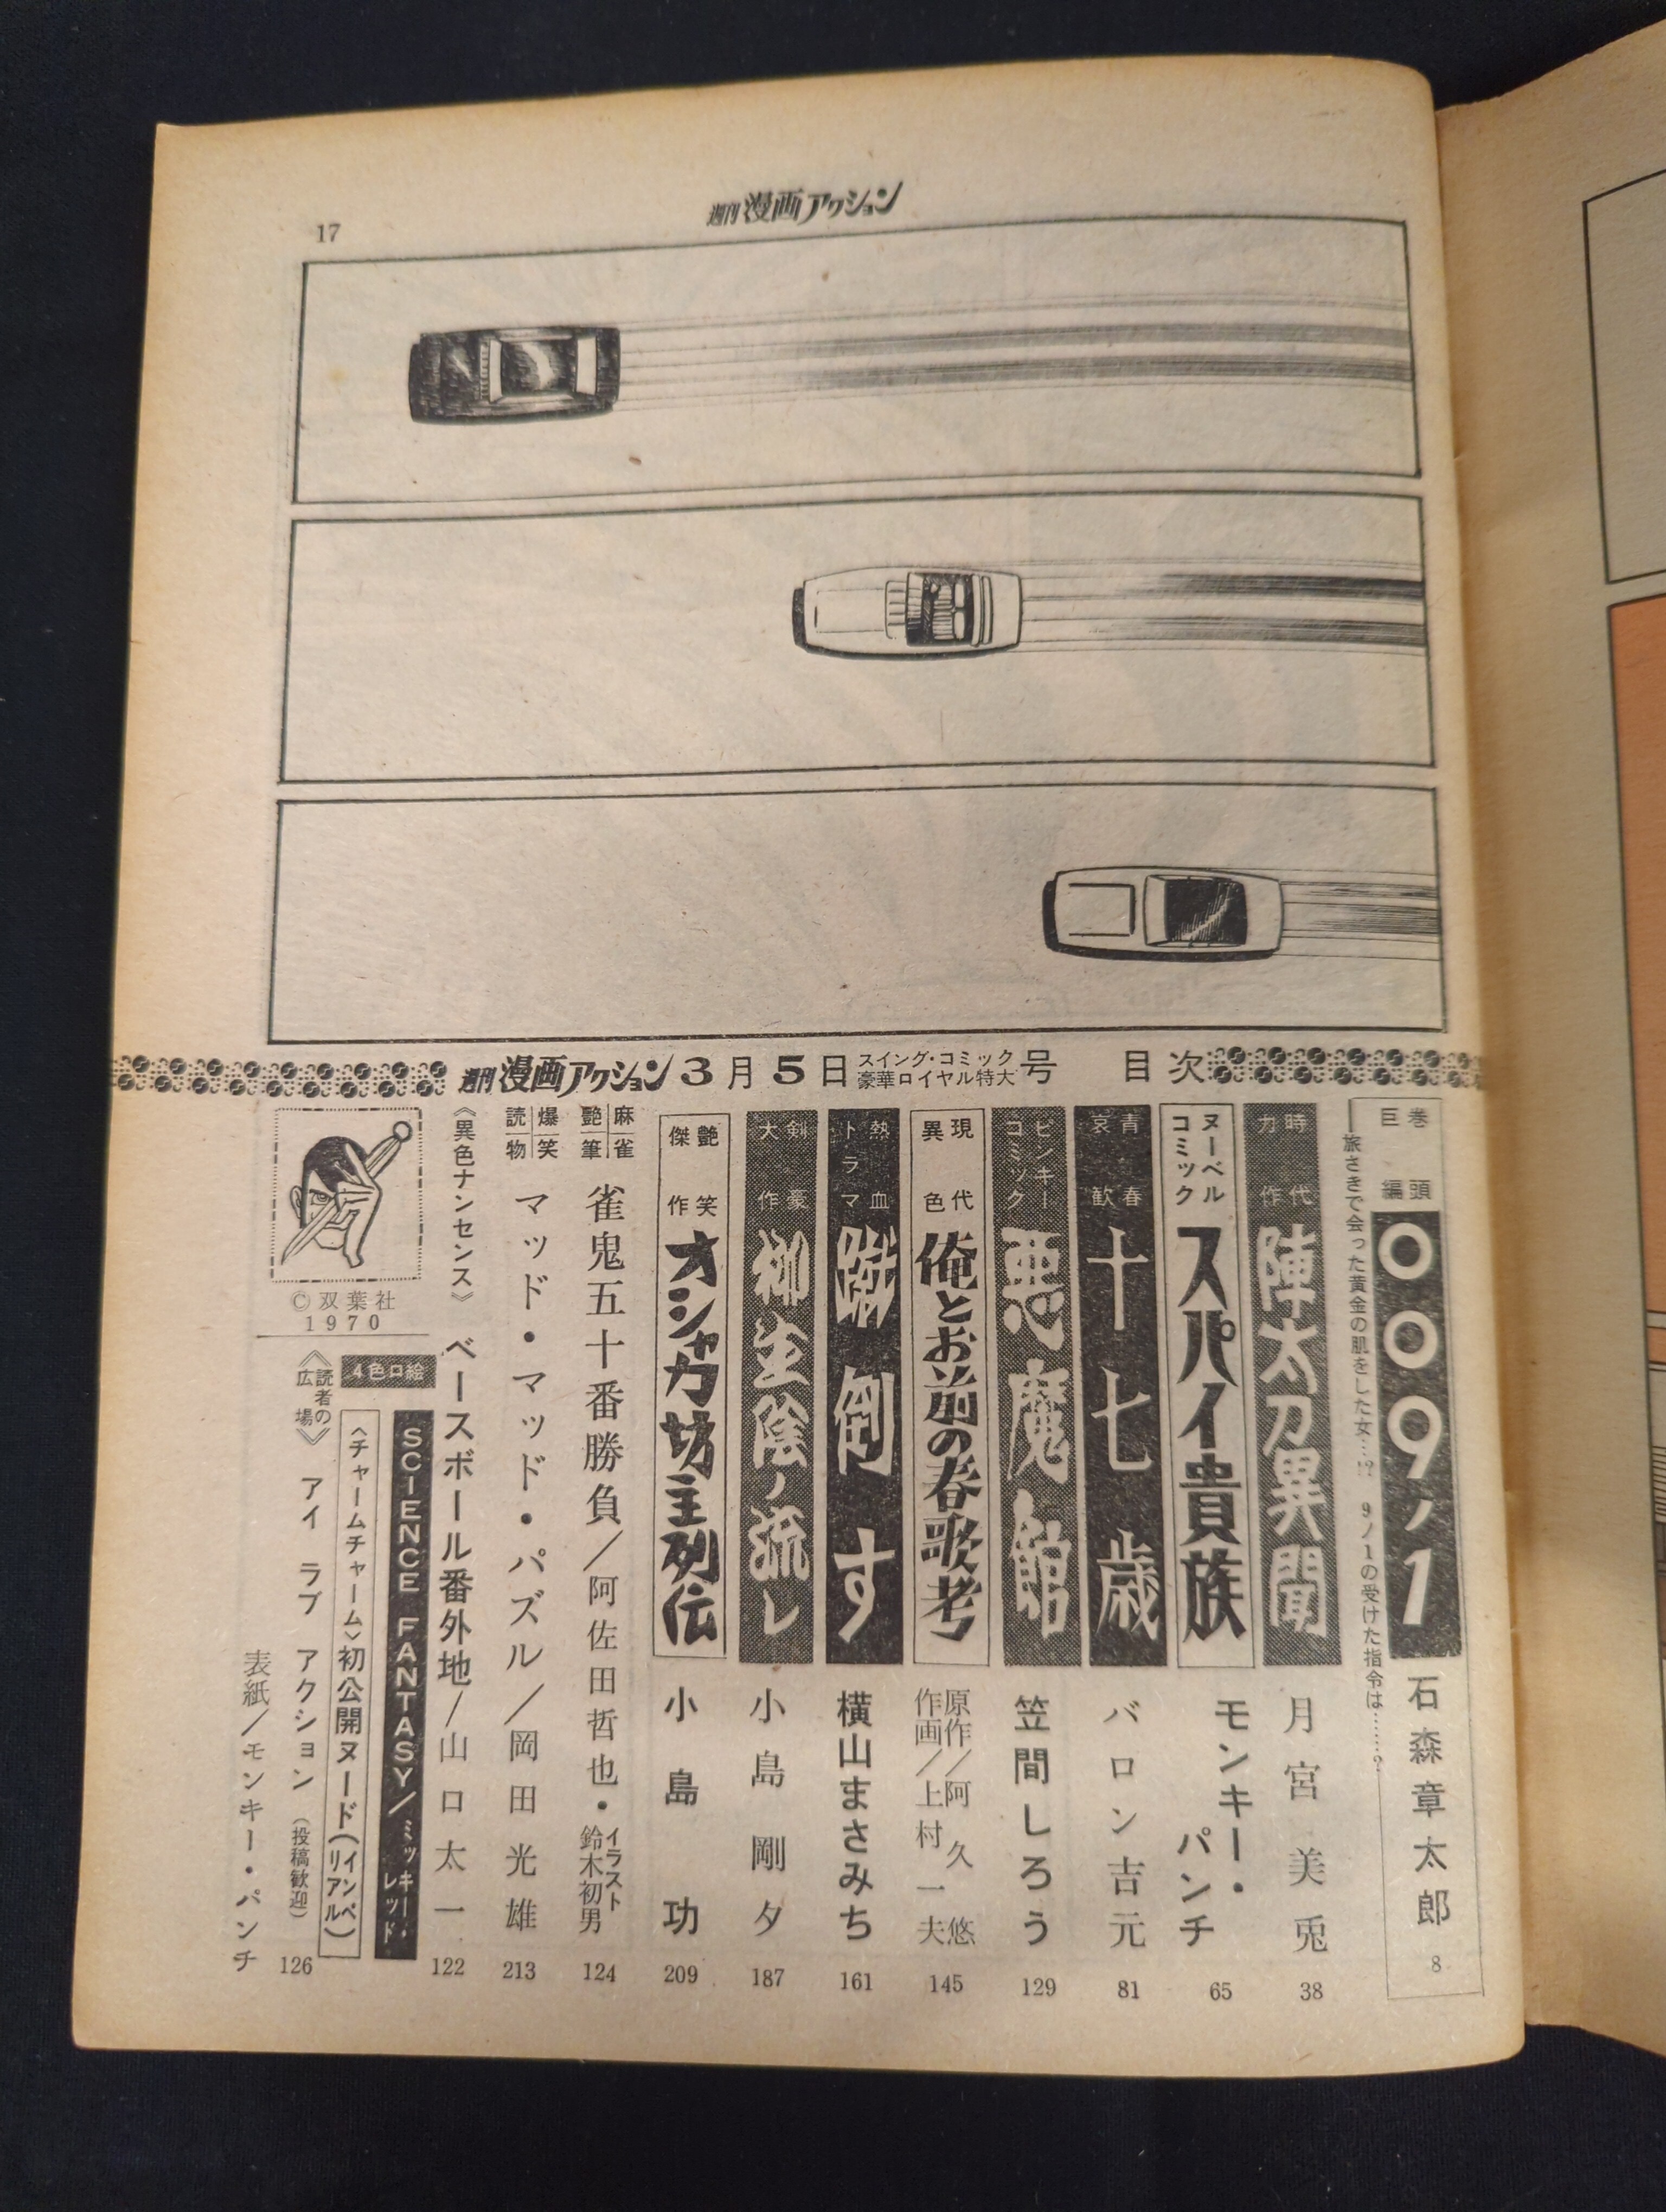 17
週刊漫画アクション
週刊漫画アクション3月5日スイング・コミック豪華ロイヤル特大号 目次
巻頭巨編
009ノ1
石森章太郎
8
旅さきで会った黄金の肌をした女…!? 9ノ1の受けた指令は……?
時代力作
陣太刀異聞
月宮美兎
38
ヌーベルコミック
スパイ貴族
モンキー・パンチ
65
青春哀歓
十七歳
バロン吉元
81
ピンキコミック
悪魔館
笠間しろう
129
現代異色
俺とお前の春歌考
原作/阿久悠
作画/上村一夫
145
熱血ドラマ
蹴倒す
横山まさみち
161
剣豪大作
柳生陰ノ流レ
小島剛夕
187
艶笑傑作
オシャカ坊主列伝
小島功
209
麻雀艶筆
雀鬼五十番勝負/阿佐田哲也・イラスト鈴木初男
124
爆笑読物
マッド・マッド・パズル/岡田光雄
213
《異色ナンセンス》 ベースボール番外地/山口太一
122
©双葉社
1970
4色口絵
SCIENCE FANTASY/ミッキー・レッド
〈チャームチャーム〉初公開ヌード(インペリアル)
《読者の広場》 アイ ラブ アクション (投稿歓迎)
126
表紙/モンキー・パンチ